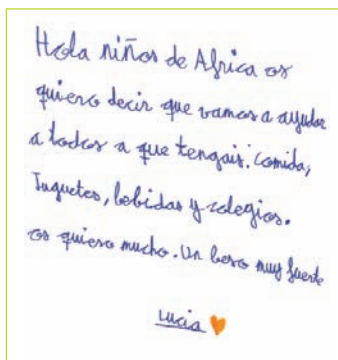 Hola niños de Africa os
quiero decir que vamos a ayudar
a todos a que tengais: comida,
Juguetes, bebidas y colegios.
os quiero mucho. Un beso muy fuerte
Lucia